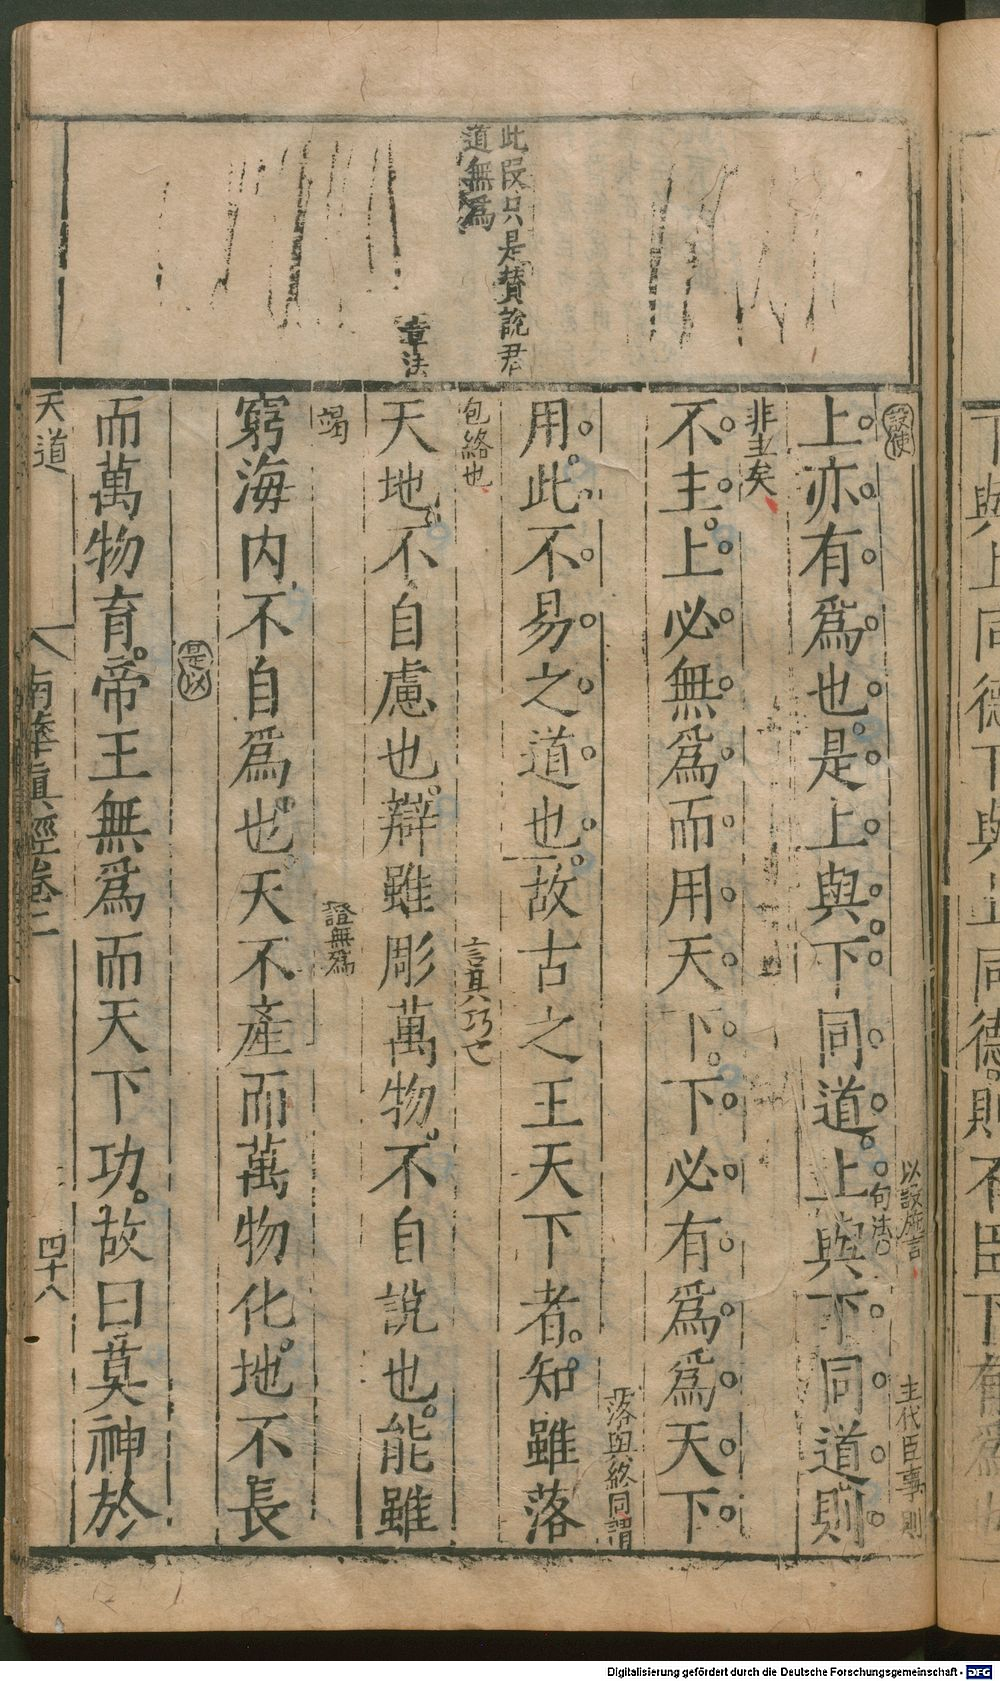 下與上同德下與上同德則不臣下有爲
設使
以設庶言
主代臣事則
上亦有爲也是上與下同道上與下同道則
句法
非主矣
不主上必無爲而用天下下必有爲爲天下
落與絡同謂
用此不易之道也故古之王天下者知雖落
包絡也
言其巧亡
天地不自慮也辯雖彫萬物不自說也能雖
竭
證無爲
窮海內不自爲也天不產而萬物化地不長
是以
而萬物育帝王無爲而天下功故曰莫神於
此段只是贊說君
道無爲
章法
天道
南華眞經卷二
四十八
Digitalisierung gefördert durch die Deutsche Forschungsgemeinschaft - DFG